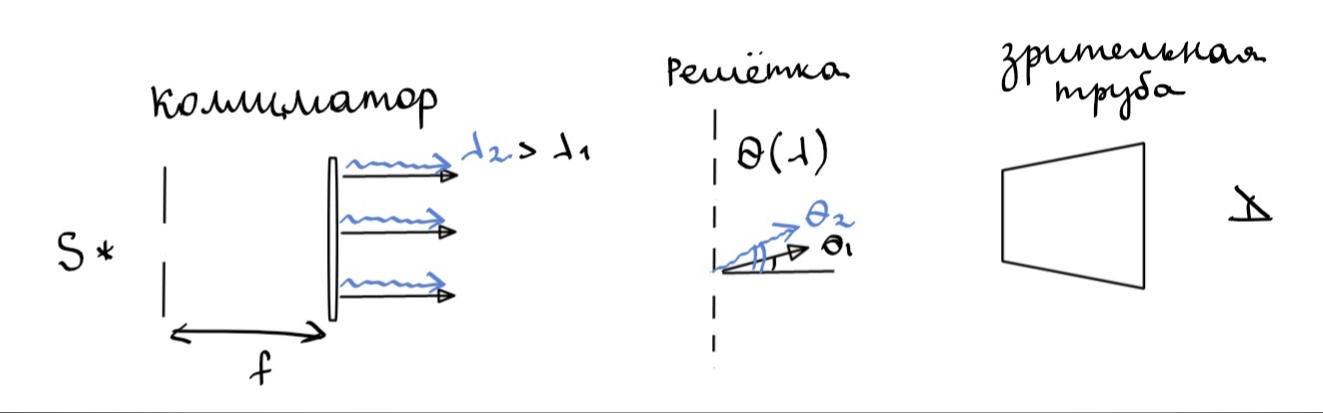 коллиматор
S *
f
λ₂ > λ₁
Решётка
θ(λ)
θ₂
θ₁
зрительная
труба